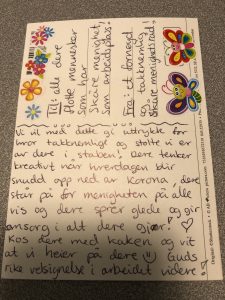 Til: alle dere
flotte mennesker
som har
Skåre menighet
som arbeidsplass!
Fra: et fornøyd
og takknemlig
Skåre menighetsråd!
Vi vil med dette gi uttrykk for
hvor takknemlige og stolte vi er
av dere i staben! Dere tenker
kreativt når hverdagen blir
snudd opp ned av Korona, dere
står på for menigheten på alle
vis og dere sprer glede og gir
omsorg i alt dere gjør!
Kos dere med kaken og vit
at vi heier på dere Guds
rike velsignelse i arbeidet videre